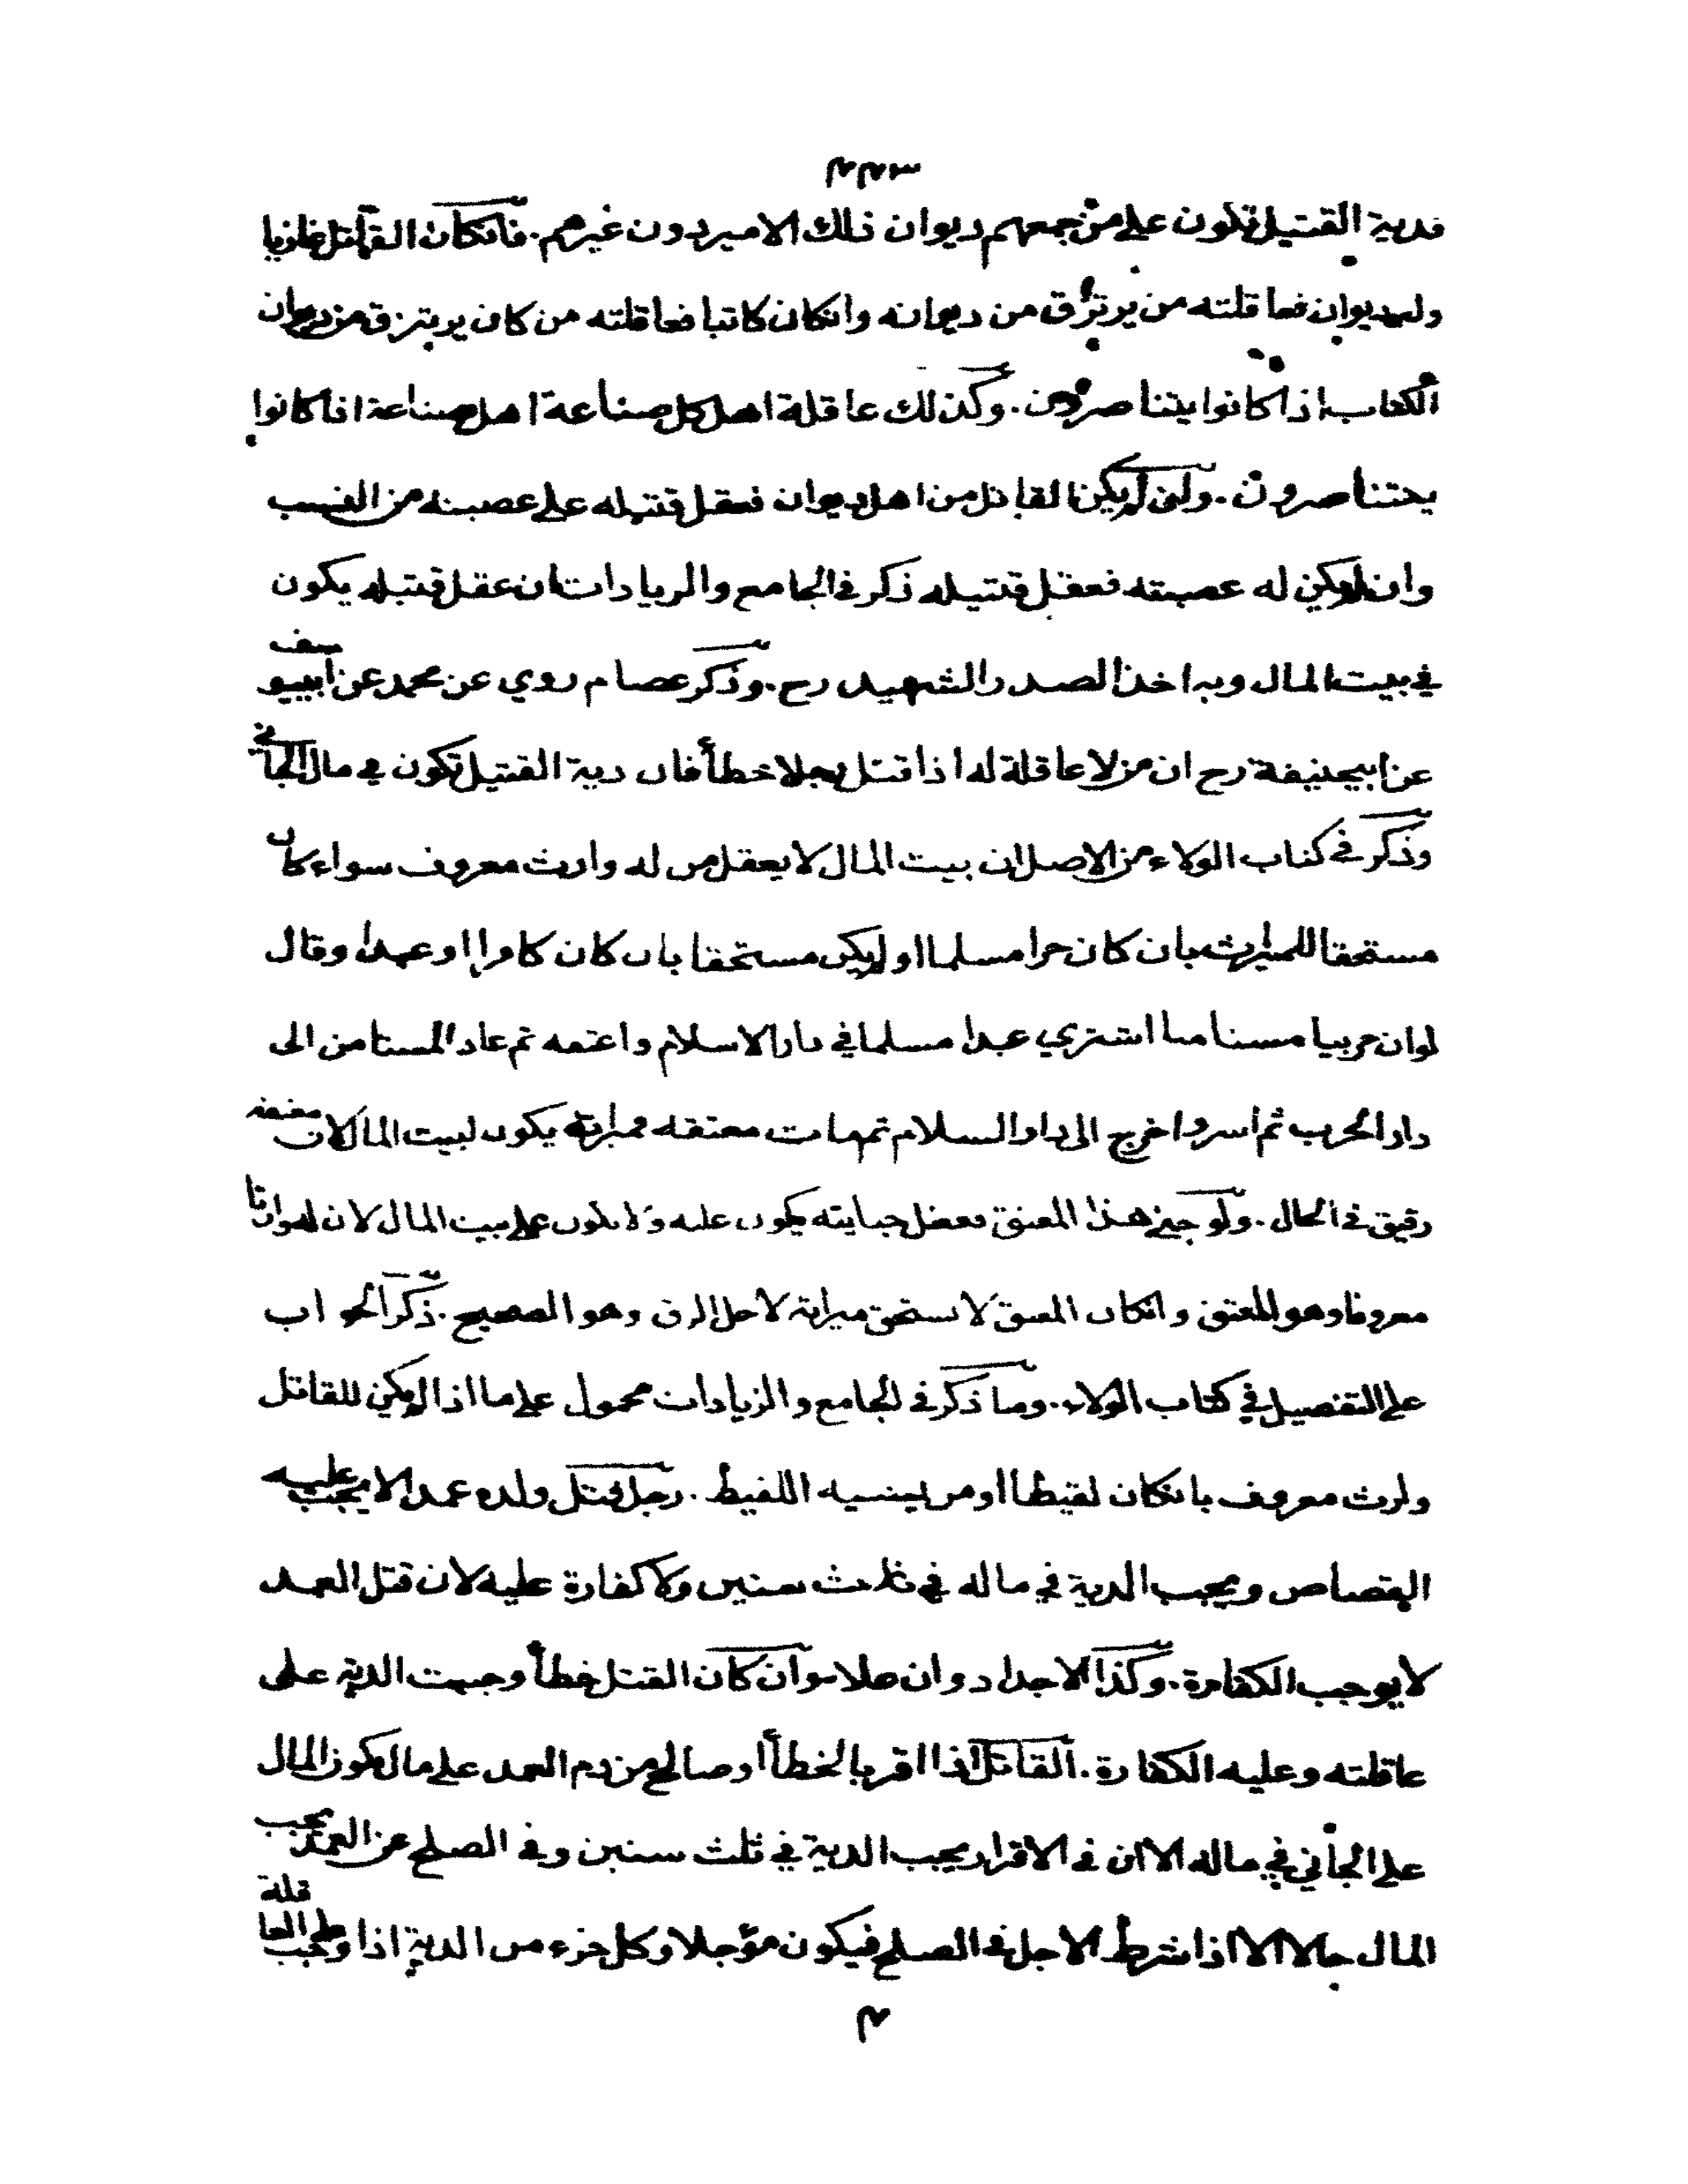 فدية القتيل تكون على من جمعهم ديوان ذلك الامير دون غيرهم. فانكان القاتل غازيا
وله ديوان فعاقلته من يرتزق من ديوانه وانكان كاتبا فعاقلته من كان يرتزق من ديوان
الكتاب اذا كانوا يتناصرون. وكذلك عاقلة اهل كل صناعة اهل صناعة اذا كانوا
يتناصرون. ولن لم يكن القاتل من اهل ديوان فعقل قتيله على عصبته من النسب
وان لم يكن له عصبته فعقل قتيله ذكر في الجامع والزيادات ان عقل قتيله يكون
في بيت المال وبه اخذ الصدر الشهيد رح. وذكر عصام روي عن محمد عن ابييوسف
عن ابيحنيفة رح ان من لا عاقلة له اذا قتل رجلا خطأ فان دية القتيل تكون في مال الجاني
وذكر في كتاب الولاء من الاصل ان بيت المال لا يعقل من له وارث معروف سواء كان
مستحقا للميراث بان كان حرا مسلما او لم يكن مستحقا بان كان كافرا او عبدا وقال
لو ان حربيا مستامنا اشتري عبدا مسلما في دار الاسلام واعتقه ثم عاد المستامن الى
دار الحرب ثم اسر واخرج الى دار السلام ثم مات معتقه فميراثه يكون لبيت المال لان معتقه
رقيق في الحال. ولو جني هذا المعتق فعقل جنايته يكون عليه ولا يكون على بيت المال لان له وارثا
معروفا وهو المعتق وانكان المعتق لا يستحق ميراثه لاجل الرق وهو الصحيح. ذكر الجواب
على التفصيل في كتاب الولاء. وما ذكر في الجامع والزيادات محمول على ما اذا لم يكن للقاتل
وارث معروف بانكان لقيطا او من اللقيط. رجل قتل ولده عمدا لا يجب عليه
القصاص ويجب الدية في ماله في ثلاث سنين ولا كفارة عليه لان قتل العمد
لا يوجب الكفارة. وكذا الاجداد وان علا وان كان القتل خطأ وجبت الدية على
عاقلته وعليه الكفارة. القاتل اذا اقر بالخطأ او صالح من دم العمد على مال يكون المال
على الجاني في ماله الا ان في الاقرار يجب الدية في ثلث سنين وفي الصلح عن العمد يجب
المال حالا الا اذا شرط الاجل في الصلح فيكون مؤجلا وكل جزء من الدية اذا وجب على العاقلة